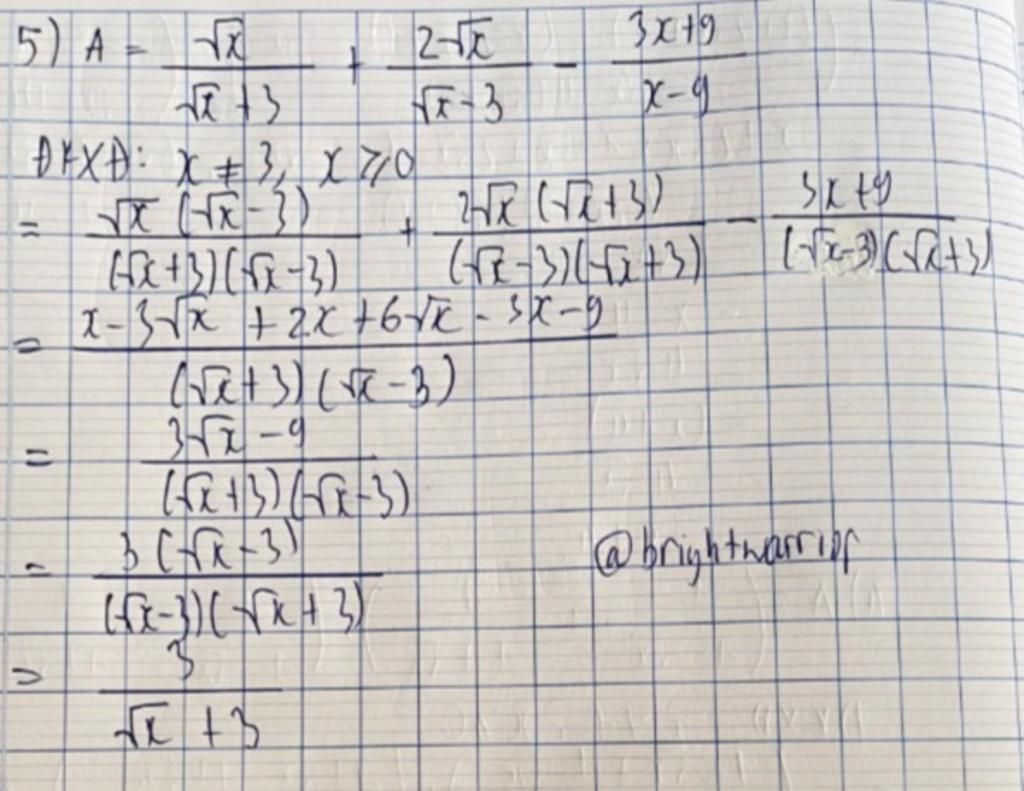 5) A = √x/(√x + 3) + 2√x/(√x - 3) - (3x+9)/(x-9)
ĐKXĐ: x ≠ 3, x ⩾ 0
= √x (√x - 3)/((√x + 3)(√x - 3)) + 2√x (√x + 3)/((√x - 3)(√x + 3)) - (3x + 9)/((√x - 3)(√x + 3))
= (x - 3√x + 2x + 6√x - 3x - 9)/((√x + 3)(√x - 3))
= (3√x - 9)/((√x + 3)(√x - 3))
= 3(√x - 3)/((√x - 3)(√x + 3))
@brightwarrior
= 3/(√x + 3)